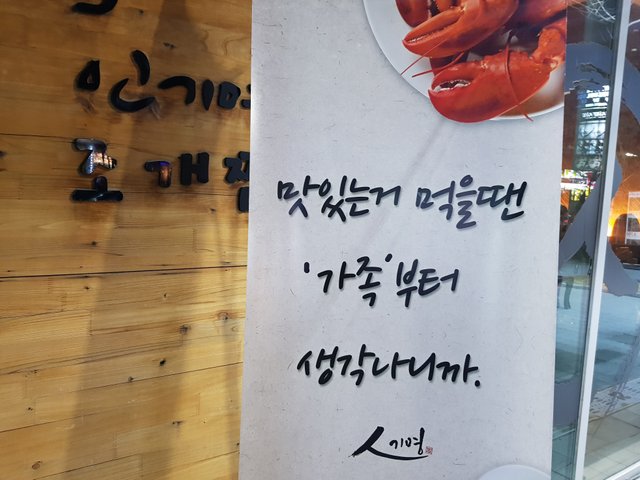 인기명
조개찜
맛있는거 먹을땐
'가족'부터
생각나니까.
人기명